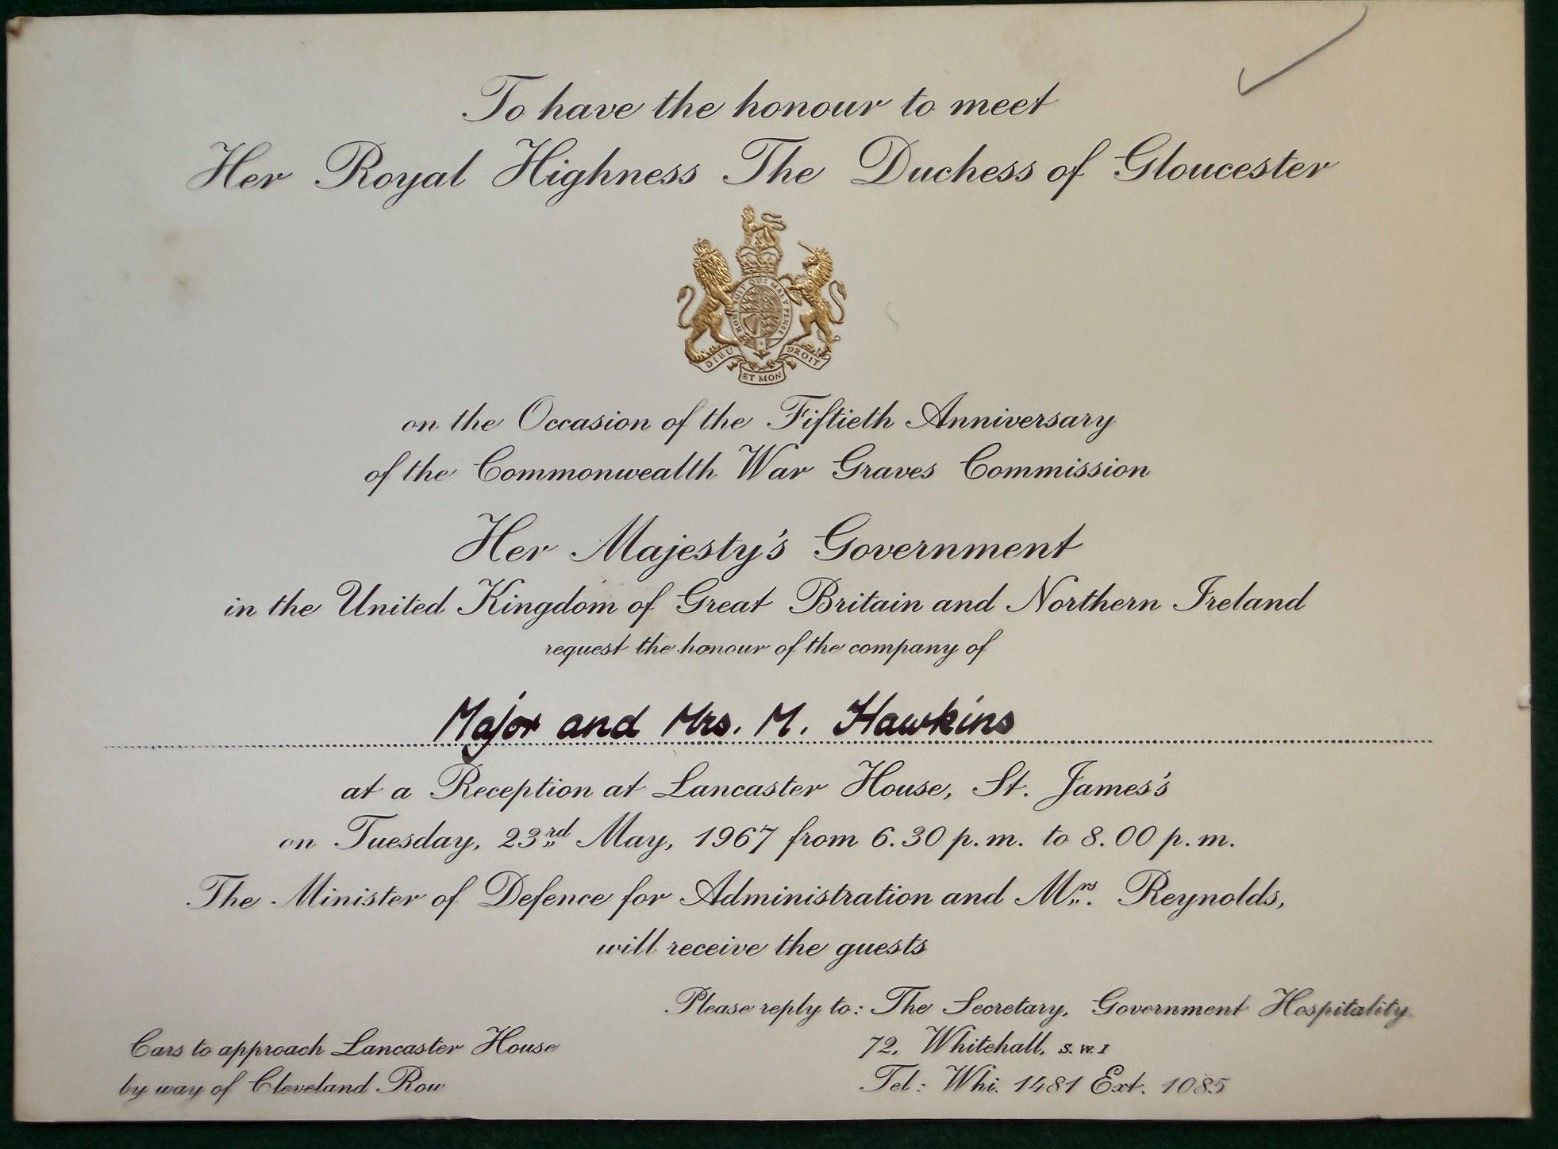 To have the honour to meet
Her Royal Highness The Duchess of Gloucester
HONI SOIT QUI MAL Y PENSE
DIEU ET MON DROIT
on the Occasion of the Fiftieth Anniversary
of the Commonwealth War Graves Commission
Her Majesty's Government
in the United Kingdom of Great Britain and Northern Ireland
request the honour of the company of
Major and Mrs. M. Hawkins
at a Reception at Lancaster House, St. James's
on Tuesday, 23rd May, 1967 from 6.30 p.m. to 8.00 p.m.
The Minister of Defence for Administration and Mrs. Reynolds,
will receive the guests
Please reply to: The Secretary, Government Hospitality
72, Whitehall, S.W.1
Tel: Whi. 1481 Ext. 1085
Cars to approach Lancaster House
by way of Cleveland Row